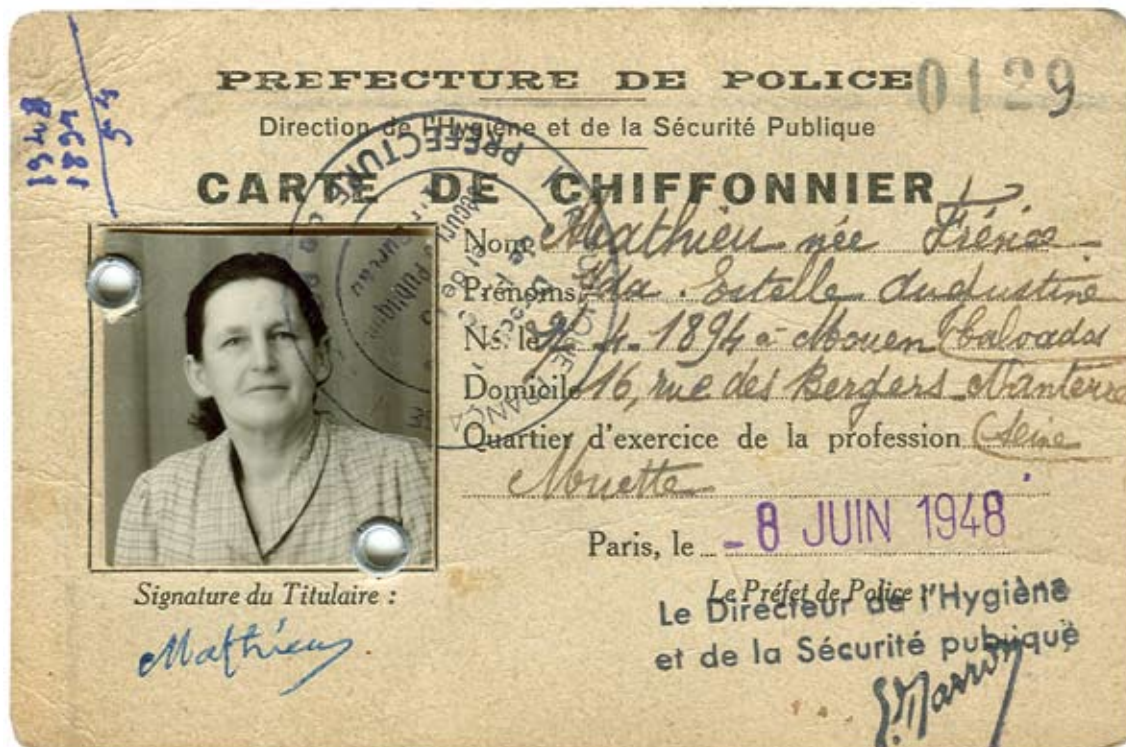 1948
1894
54
PREFECTURE DE POLICE 0129
Direction de l'Hygiène et de la Sécurité Publique
CARTE DE CHIFFONNIER
Nom Mathieu née
Prénoms, Ida. Estelle Augustine
Né. le 4-1894 à Mouen (Calvados
Domicile 16, rue des Bergers Nanterre
Quartier d'exercice de la profession (Seine
Muette
Paris, le - 8 JUIN 1948
Signature du Titulaire :
Le Préfet de Police :
Le Directeur de l'Hygiène
et de la Sécurité publique
Mathieu